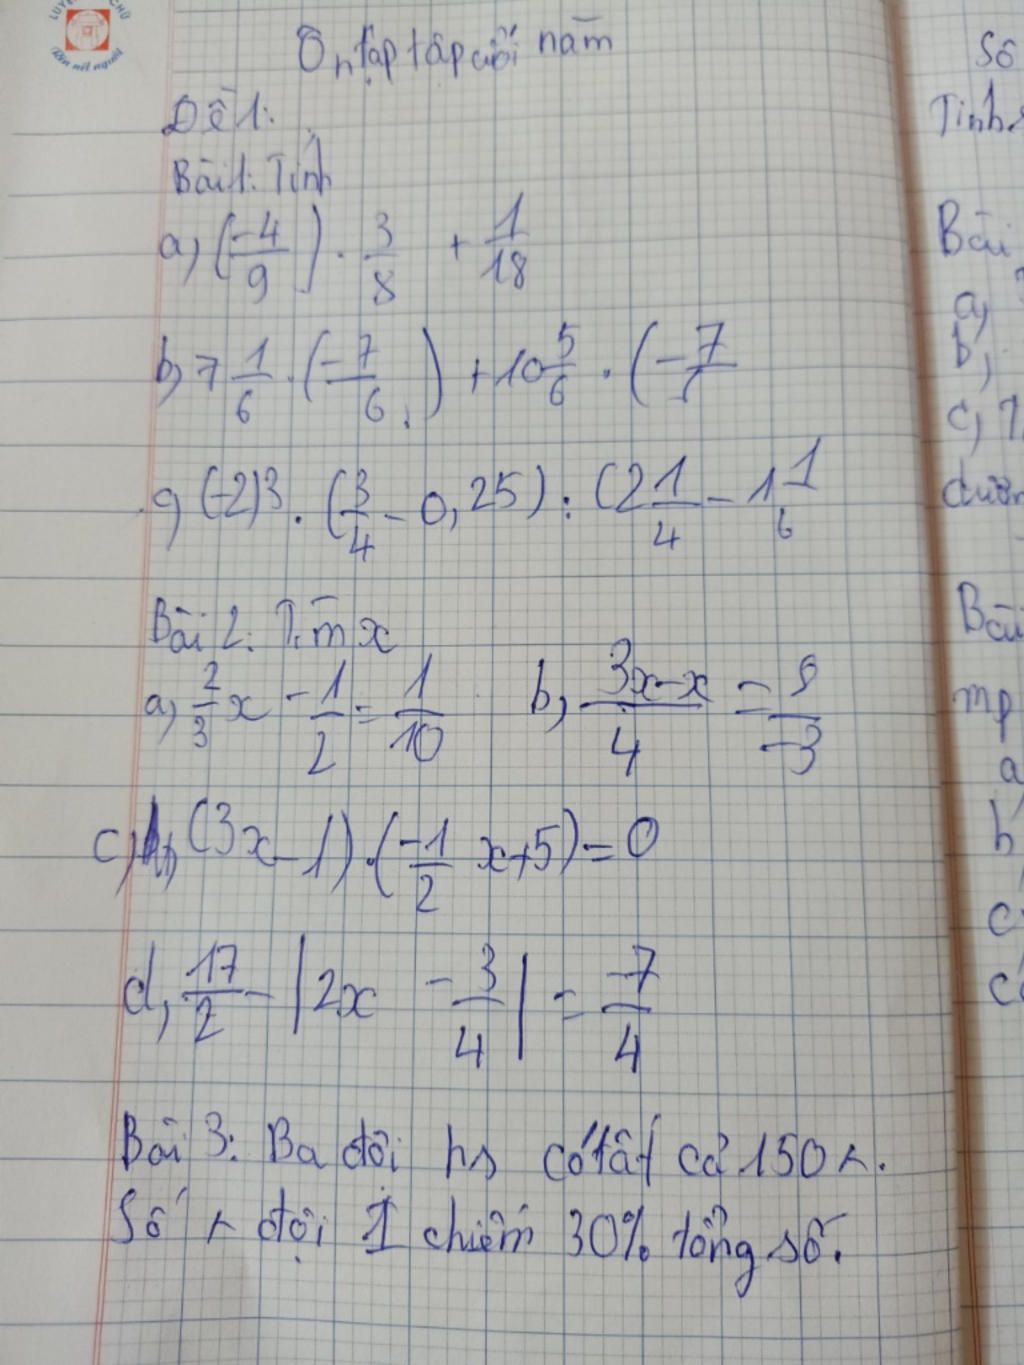 Ôn tập tập cuối năm
Đề 1:
Bài 1: Tính
a, (-4/9) . 3/8 + 1/18
b, 7 1/6 . (-7/6) + 10 5/6 . (-7/
c, (-2)3 . (3/4 - 0,25) : (2 1/4 - 1 1/6
Bài 2: Tìm x
a, 2/3 x - 1/2 = 1/10 b, 3x-x/4 = 9/-3
c, (3x-1) . (-1/2 x+5) = 0
d, 17/2 - |2x - 3/4| = -7/4
Bài 3: Ba đội hs có tất cả 150
Số đội I chiếm 30% tổng số.
Số
Tính
Bài
a,
b,
c, 7
Bài
mp
a
b
c